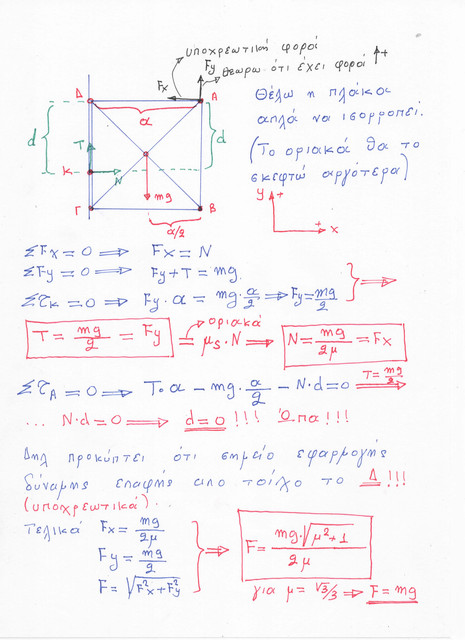 υποχρεωτική φορά
Fy θεωρω ότι έχει φορά ↑+
Fx
Δ
A
a
d
d
T
K
N
mg
Γ
B
a/2
Θέλω η πλάκα
απλά να ισορροπεί.
(Το οριακά θα το
σκεφτώ αργότερα)
y +
+ x
ΣFx = 0 ⟹ Fx = N
ΣFy = 0 ⟹ Fy + T = mg
Στκ = 0 ⟹ Fy · a = mg · a/2 ⟹ Fy = mg/2 } ⟹
T = mg/2 = Fy = μs · N ⟹ N = mg/2μ = Fx
οριακά
ΣτA = 0 ⟹ T · a − mg · a/2 − N · d = 0 ⟹ T = mg/2
... N · d = 0 ⟹ d = 0 !!! Όπα!!!
Δηλ προκύπτει ότι σημείο εφαρμογής
δύναμης επαφής απο τοίχο το Δ !!!
(υποχρεωτικά)..
Τελικά Fx = mg/2μ
Fy = mg/2
F = √Fx²+Fy²
} ⟹ F = mg·√μ²+1 / 2μ
για μ = √3/3 ⟹ F = mg